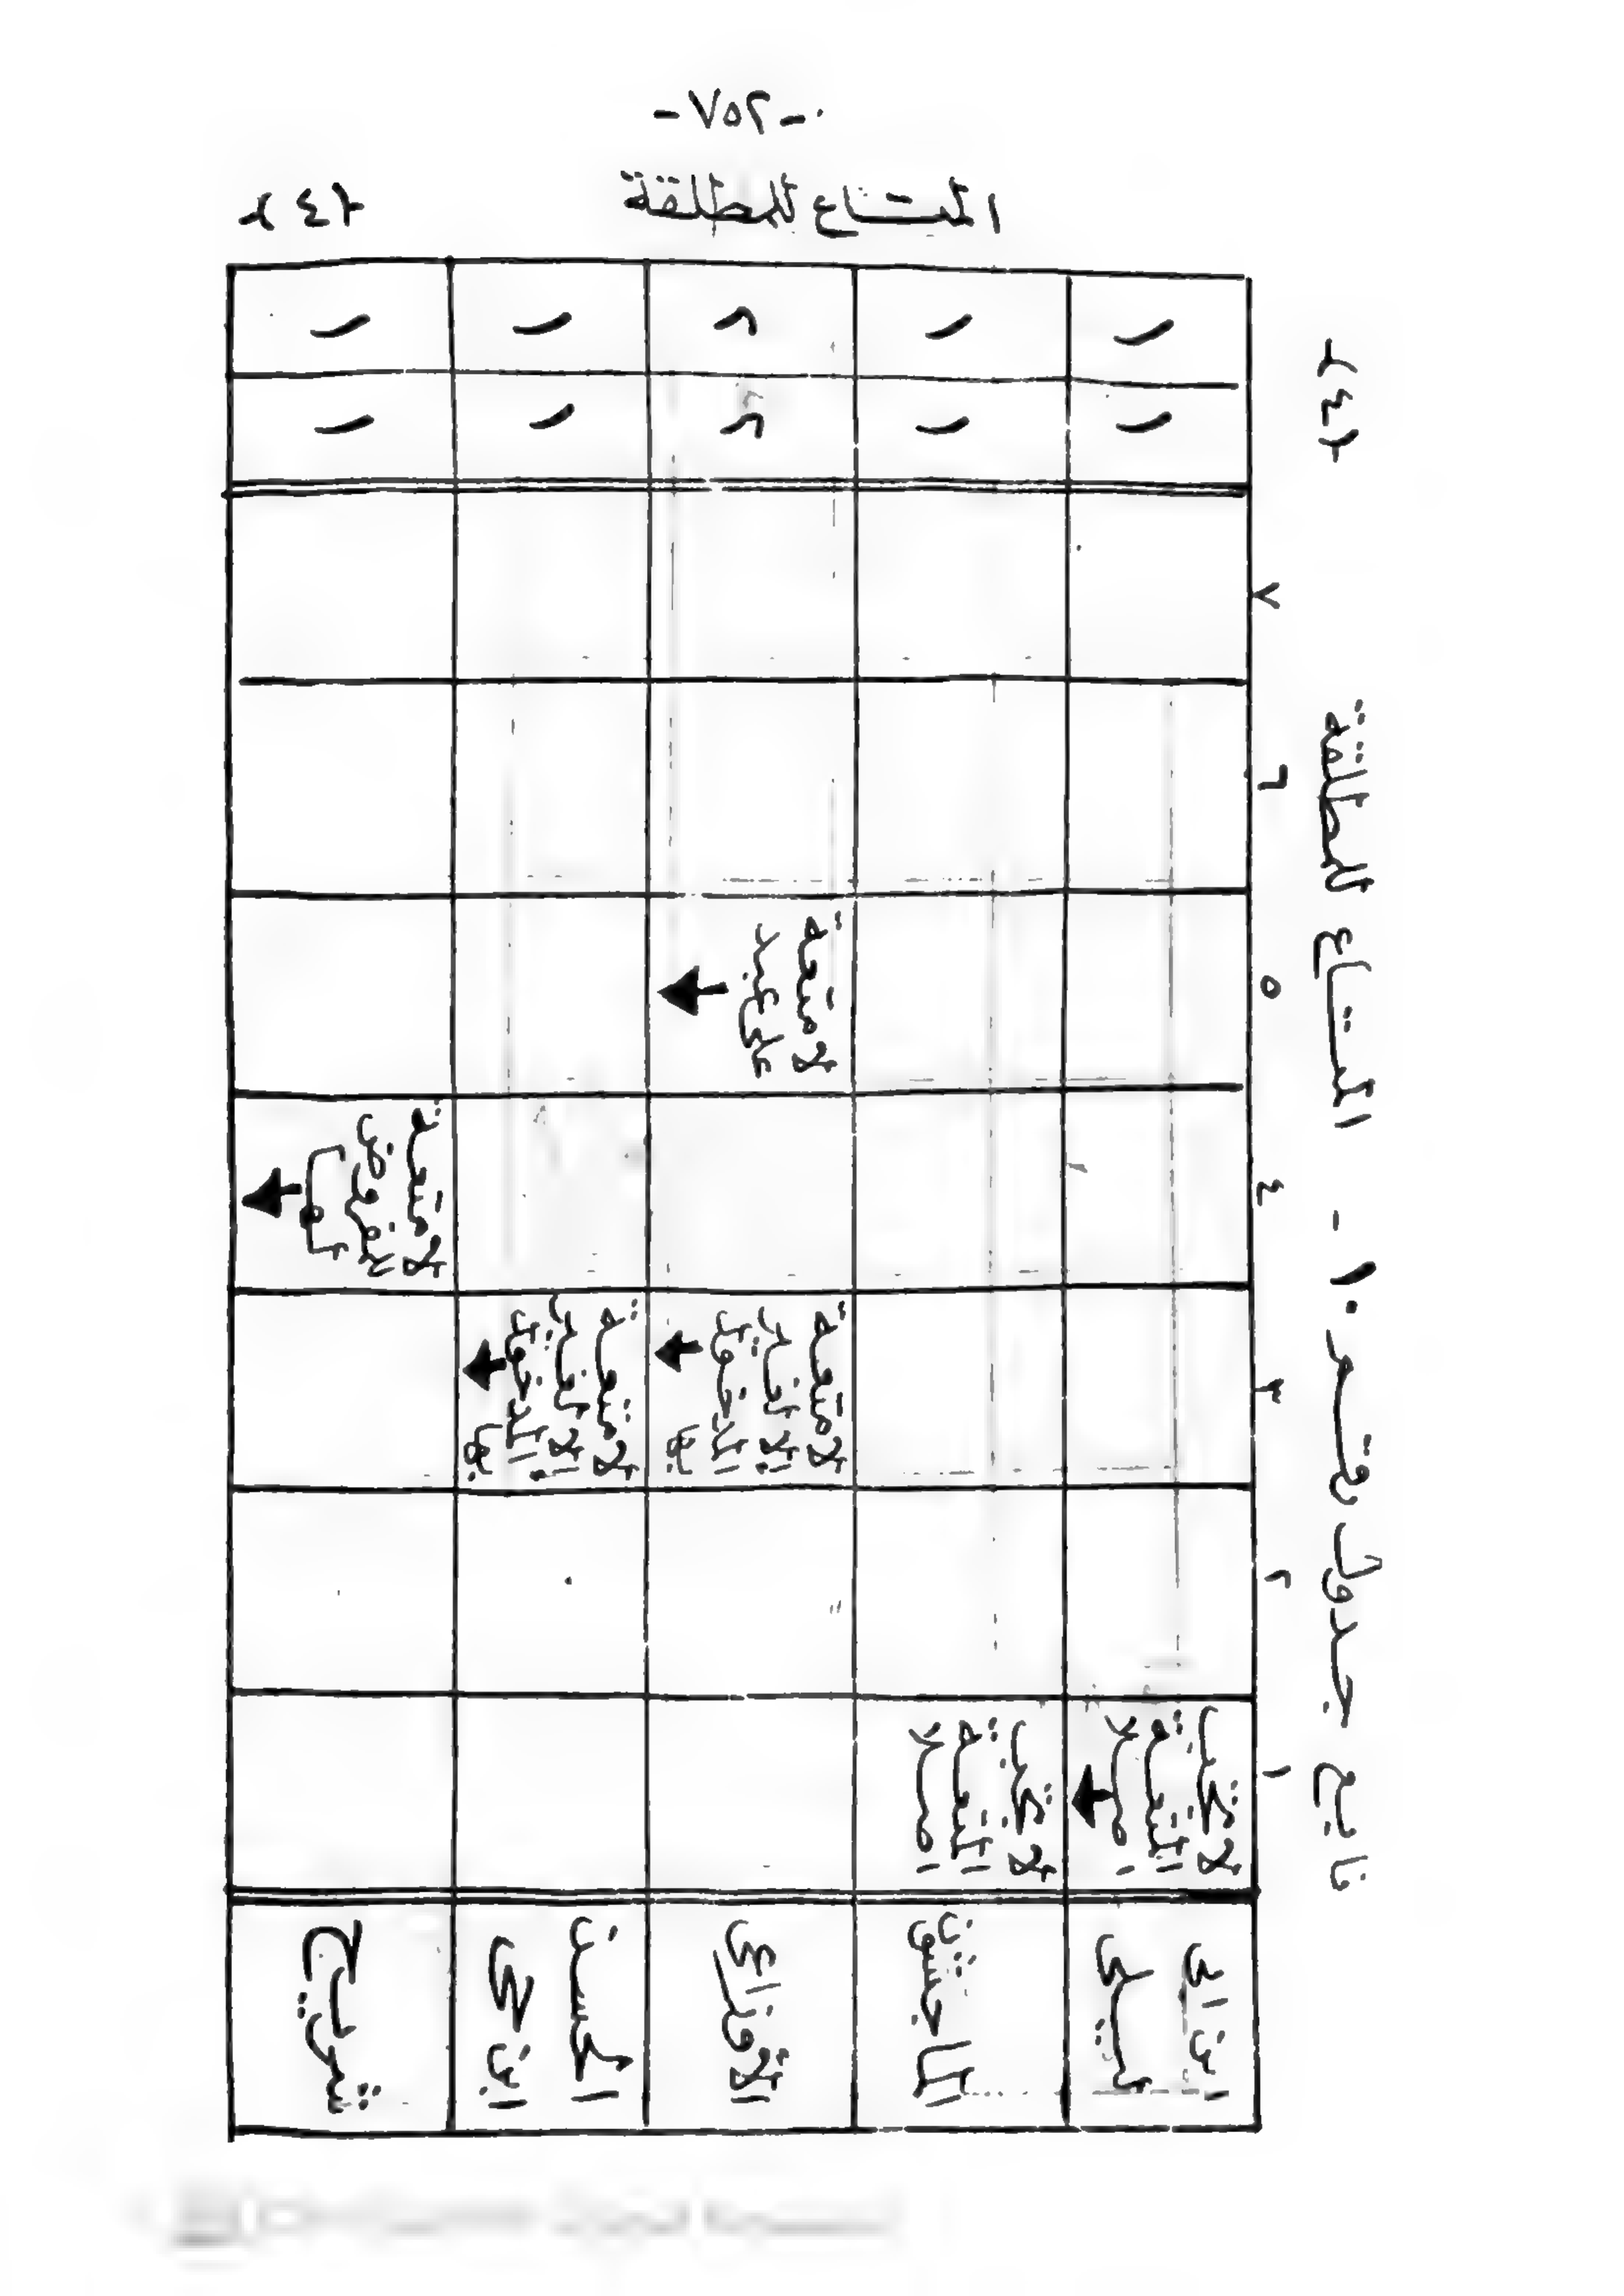 -٢٥٧-
المتاع للمطلقة
٢٤٢
تابع جدول رقم ١٠ - المتاع للمطلقة
٢٤٢
١ ٢ ٣ ٤ ٥ ٦ ٧
ابن ابى
ليلى
المتعة
١ ١
الماجشون
المتعة
١ ١
الأوزاعي
لا متعة
إلا لغير
المدخول
بها
لا متعة
على عبد
٢ ٢
الحسن
ابن حى
لا متعة
إلا لغير
المدخول
بها
١ ١
شريح
لا متعة
١ ١